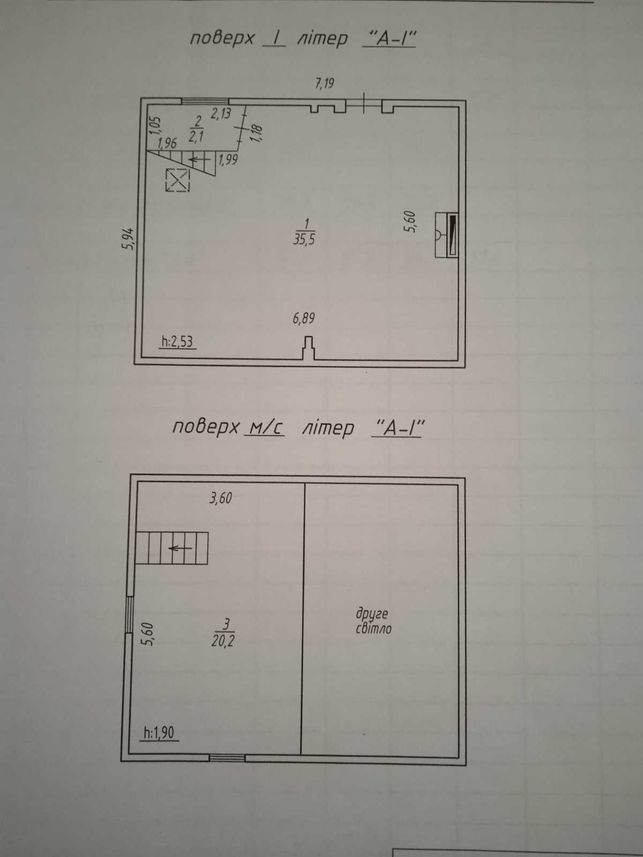 поверх I літер "А-I"
7,19
2,13
1,05
2
2,1
1,18
1,96
1,99
5,94
1
35,5
5,60
6,89
h:2,53
поверх м/с літер "А-I"
3,60
5,60
3
20,2
друге
світло
h:1,90